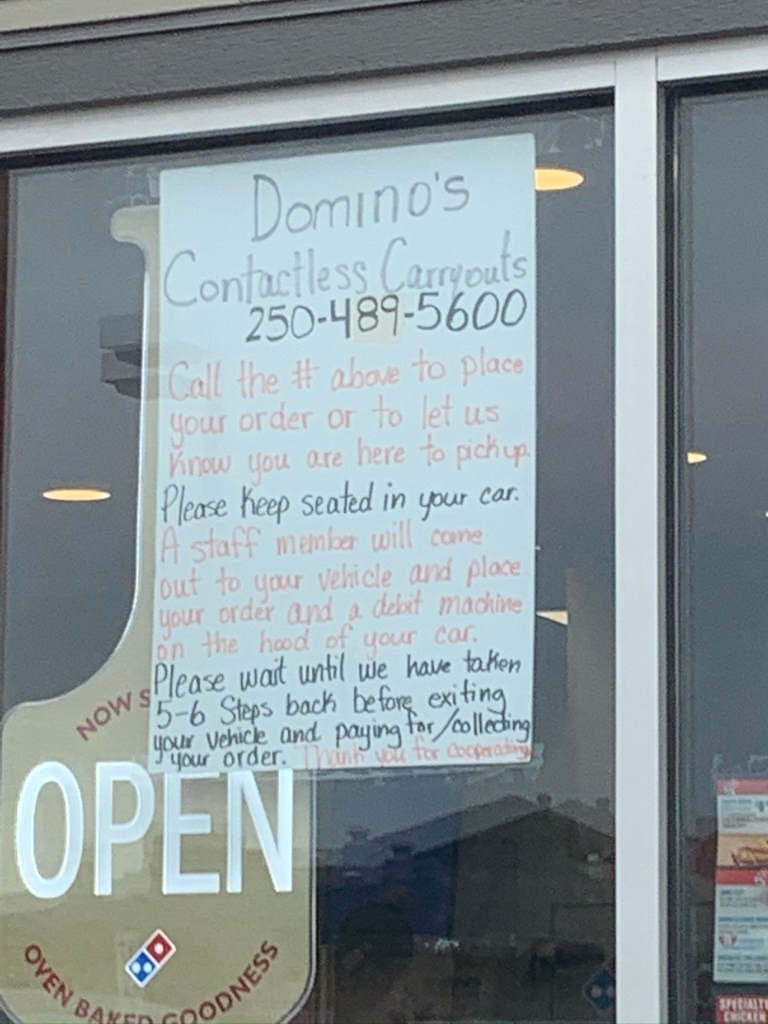 Domino's
Contactless Carryouts
250-489-5600
Call the # above to place
your order or to let us
know you are here to pickup.
Please keep seated in your car.
A staff member will come
out to your vehicle and place
your order and a debit machine
on the hood of your car.
Please wait until we have taken
5-6 Steps back before exiting
your vehicle and paying for/collecting
your order. Thank you for cooperating
NOW S
OPEN
OVEN BAKED GOODNESS
SPECIALTY
CHICKEN